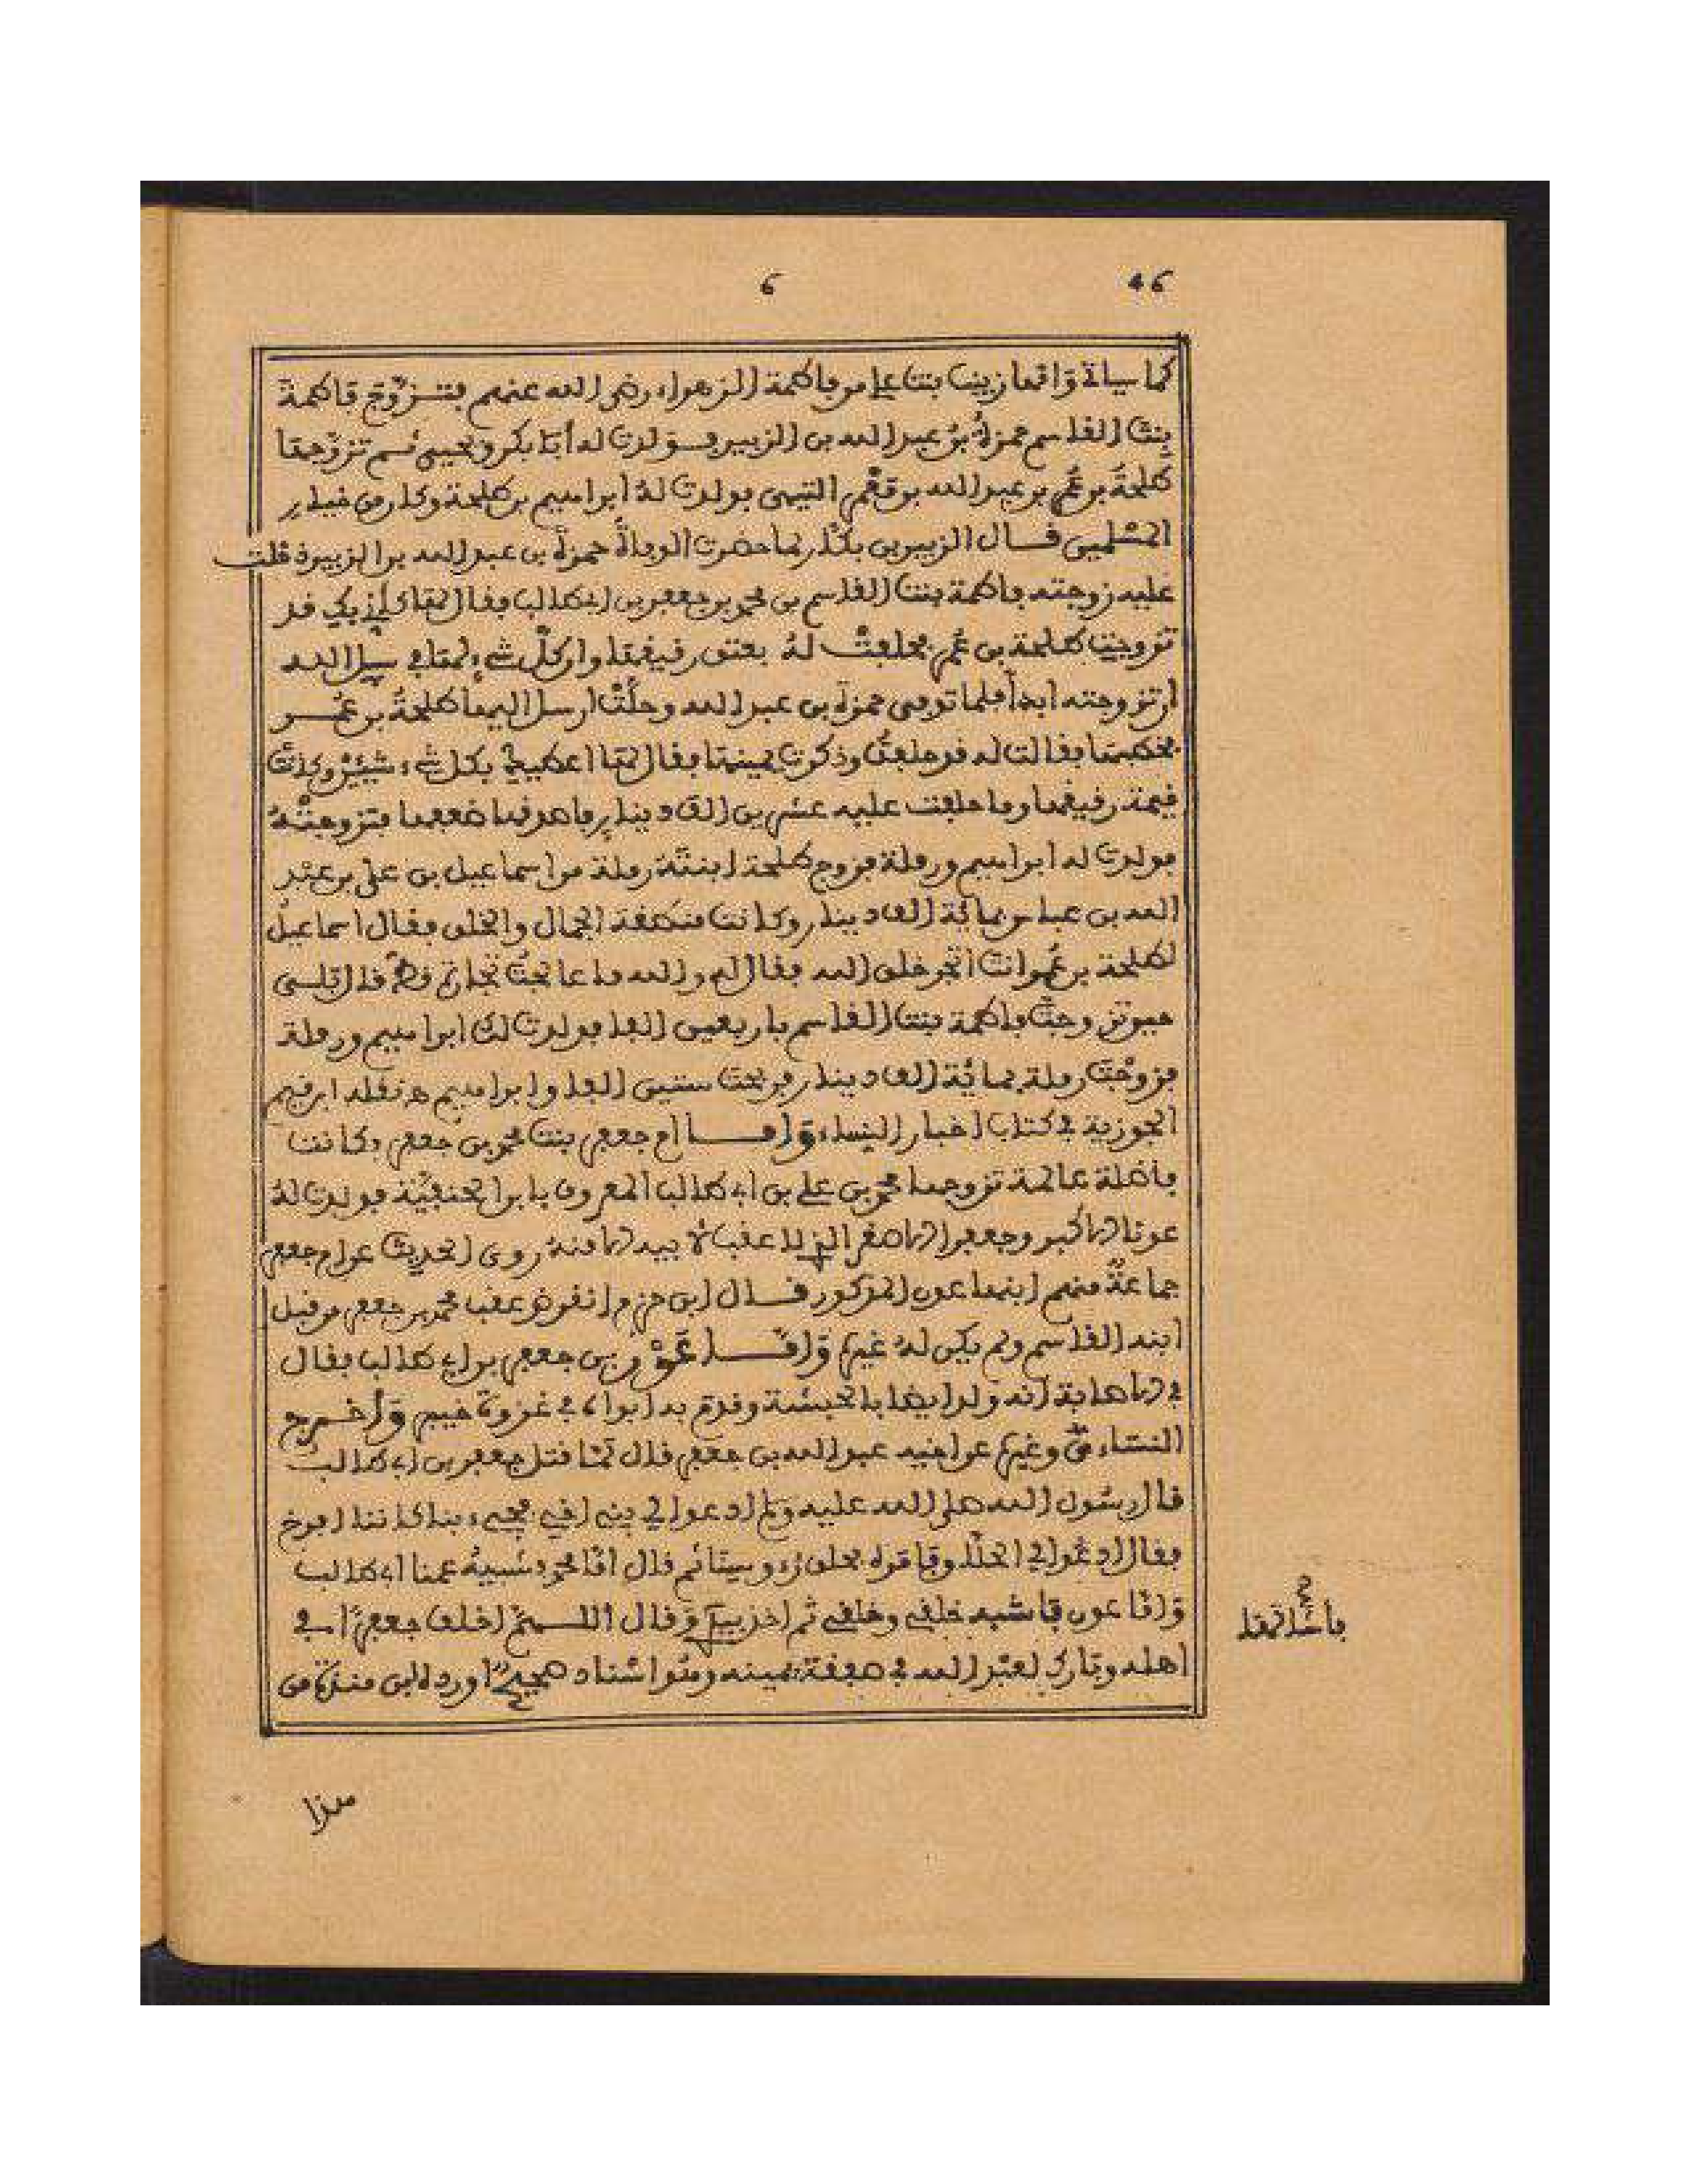 46 6
كما سياتي وأمها زينب بنت علي من فاطمة الزهراء رضي الله عنهم فتزوج فاطمة
بنت القاسم حمزة بن عبد الله بن الزبير فولدت له أبا بكر ويحيى ثم تزوجها
طلحة بن عمر بن عبد الله بن معمر التيمي فولدت له ابراهيم بن طلحة وكان من خيار
المسلمين قال الزبير بن بكار لما حضرت الوفاة حمزة بن عبد الله بن الزبير دخلت
عليه زوجته فاطمة بنت القاسم بن محمد بن جعفر بن ابي طالب فقال لها كأني بك قد
تزوجت طلحة بن عمر فحلفت له بعتق رقيقها وان كل شيء لها في سبيل الله
ان تزوجته ابدا فلما توفي حمزة بن عبد الله وحلت ارسل اليها طلحة بن عمر
فخطبها فقالت له قد حلفت وذكرت يمينها فقال لها اعطيك بكل شيء شيئين وكانت
قيمة رقيقها وما حلفت عليه عشرين الف دينار فاصدقها ضعفها فتزوجته
فولدت له ابراهيم ورملة فزوج طلحة ابنته رملة من اسماعيل بن علي بن عبد
الله بن عباس بمائة الف دينار وكانت الجمال والخلق فقال اسماعيل
لطلحة بن عمر انت اتجر خلق الله فقال له والله ما عالجت تجارة قط قال بلى
حين تزوجت فاطمة بنت القاسم باربعين الفا فولدت لك ابراهيم ورملة
فزوجت رملة بمائة الف دينار فربحت ستين الفا وابراهيم نقله ابن قيم
الجوزية في كتاب اخبار النساء وأما ام جعفر بنت محمد بن جعفر وكانت
فاضلة عالمة تزوجها محمد بن علي بن ابي طالب المعروف بابن الحنفية فولدت له
عونا الاكبر وجعفرا الاصغر الذي لا عقب لابيه الا منه روى الحديث عن ام جعفر
جماعة منهم ابنها عون المذكور قال ابن حزم انقرض عقب محمد بن جعفر من قبل
ابنه القاسم ولم يكن له غيره وأما عون بن جعفر بن ابي طالب فقال
في الاصابة انه ولد ايضا بالحبشة وقدم به ابواه في غزوة خيبر وأخرج
النساءي وغيره عن اخيه عبد الله بن جعفر قال لما قتل جعفر بن ابي طالب
قال رسول الله صلى الله عليه وسلم ادعوا لي بني اخي فجيء بنا كاننا افرخ
فقال ادعوا لي الحلاق فامره فحلق رءوسنا ثم قال اما محمد فشبيه عمنا ابي طالب
وأما عون فاشبه خلقي وخلقي ثم اخذ بيدي وقال اللهم اخلف جعفرا في
اهله وبارك لعبد الله في صفقة يمينه وهو اسناد صحيح اورده ابن مندة من
فأشالها
هذا